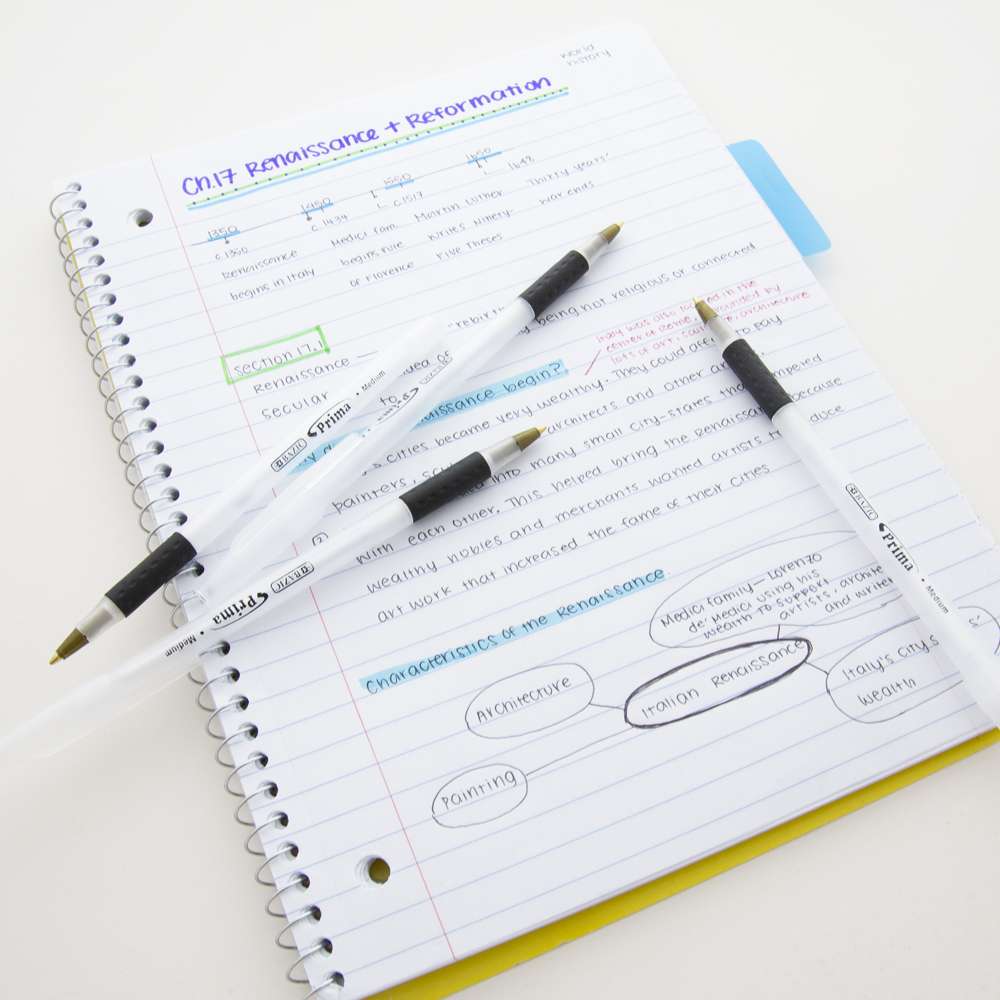 world
history
Ch.17 Renaissance + Reformation
1350
1450
1550
1650
c.1350
Renaissance
begins in Italy
c.1434
Medici fam.
begins rule
or Florence
c.1517
Martin Luther
writes Ninety-
Five Theses
1648
Thirty years'
war ends
section 17.1
Renaissance — rebirth
Secular being not religious or connected
to
Italy was also in the
center of
lots of art, architecture
Renaissance begin?
cities became very wealthy. They could afford to pay
painters, architects and other
into many small city-states that
with each other. This helped bring the Renaissance because
wealthy nobles and merchants wanted artists to
art work that increased the fame of their cities
Characteristics of the Renaissance
Medici family — Lorenzo
de' Medici using his
wealth to support
artists,
and
Italian Renaissance
Architecture
Painting
Italy's city's
wealth
BAZIC Prima • Medium
BAZIC Prima • Medium
BAZIC Prima • Medium
Prima